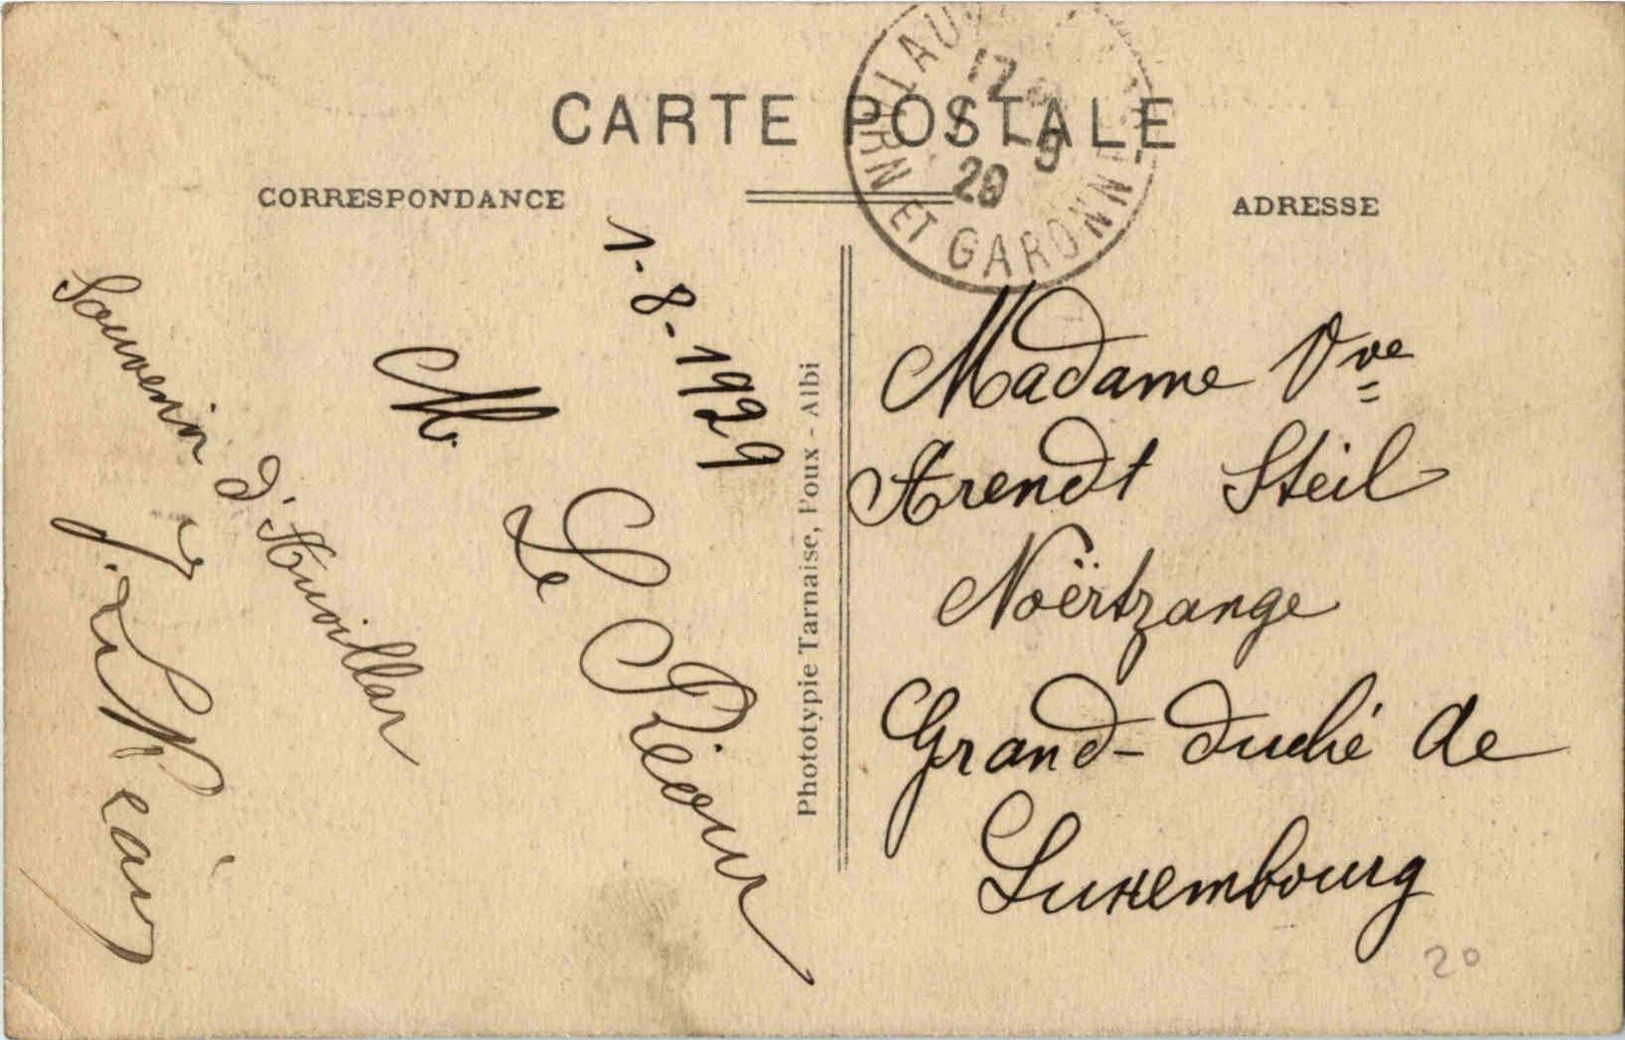 CARTE POSTALE
CORRESPONDANCE
ADRESSE
TARN ET GARONNE
1-8-1929
Souvenir d'Auvillar
M. Le Récour
J. Le Réau
Phototypie Tarnaise, Poux - Albi
Madame Vve
Arendt Steil
Noërtzange
Grand-duché de
Luxembourg
20